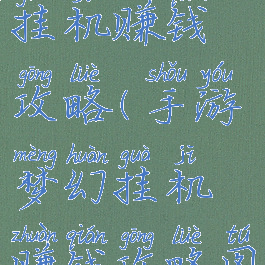 挂机赚钱
gōng lüè shǒu yóu
攻略(手游
mèng huàn guà jī
梦幻挂机
zhuàn qián gōng lüè tú
赚钱攻略图